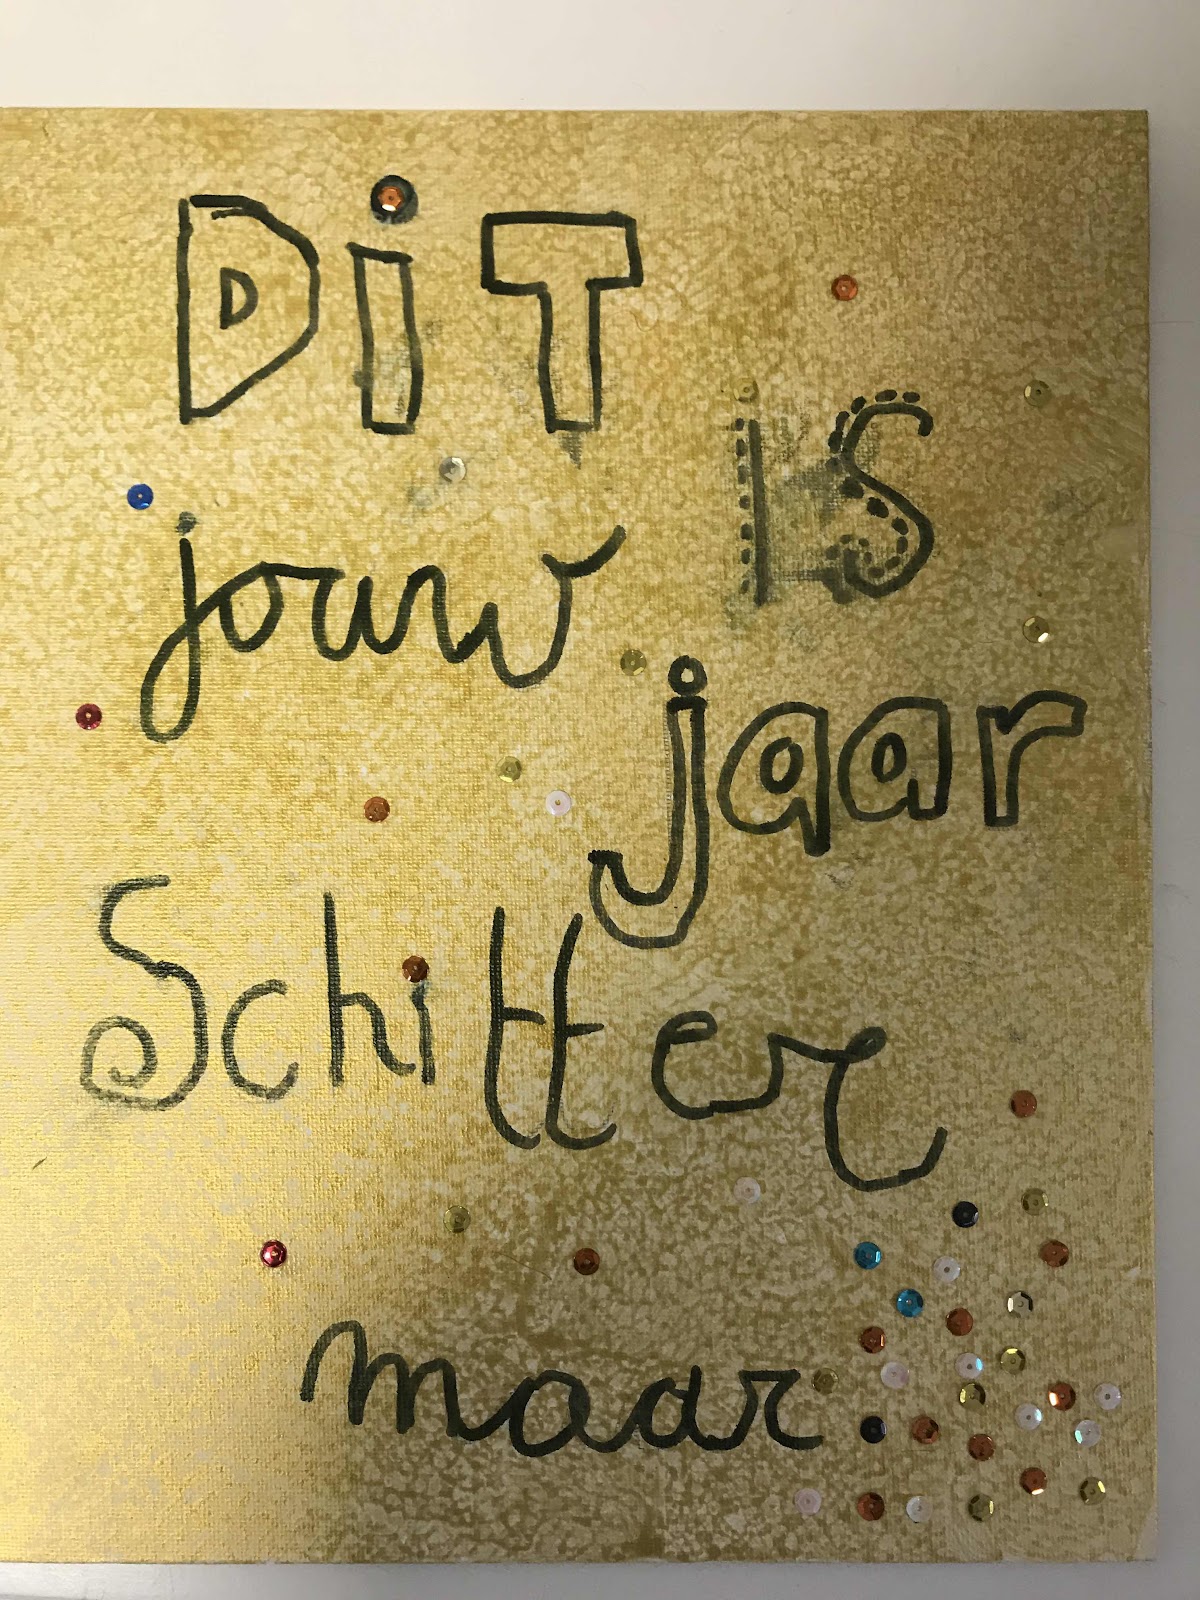 DiT
IS
jouw
jaar
Schitter
maar